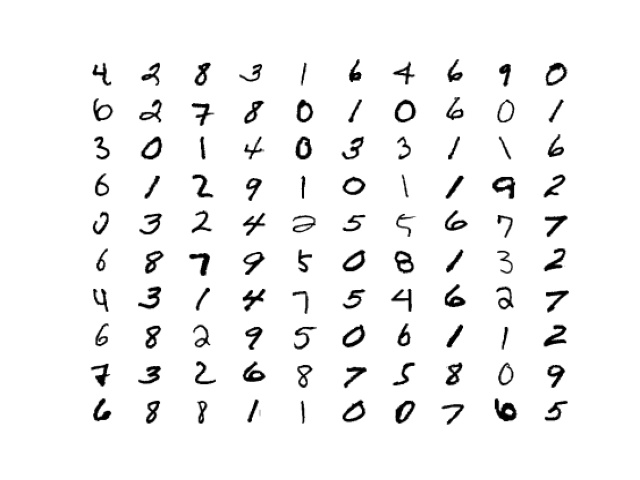 4 2 8 3 1 6 4 6 9 0
6 2 7 8 0 1 0 6 0 1
3 0 1 4 0 3 3 1 1 6
6 1 2 9 1 0 1 1 9 2
0 3 2 4 2 5 5 6 7 7
6 8 7 9 5 0 8 1 3 2
4 3 1 4 7 5 4 6 2 7
6 8 2 9 5 0 6 1 1 2
7 3 2 6 8 7 5 8 0 9
6 8 8 1 1 0 0 7 6 5